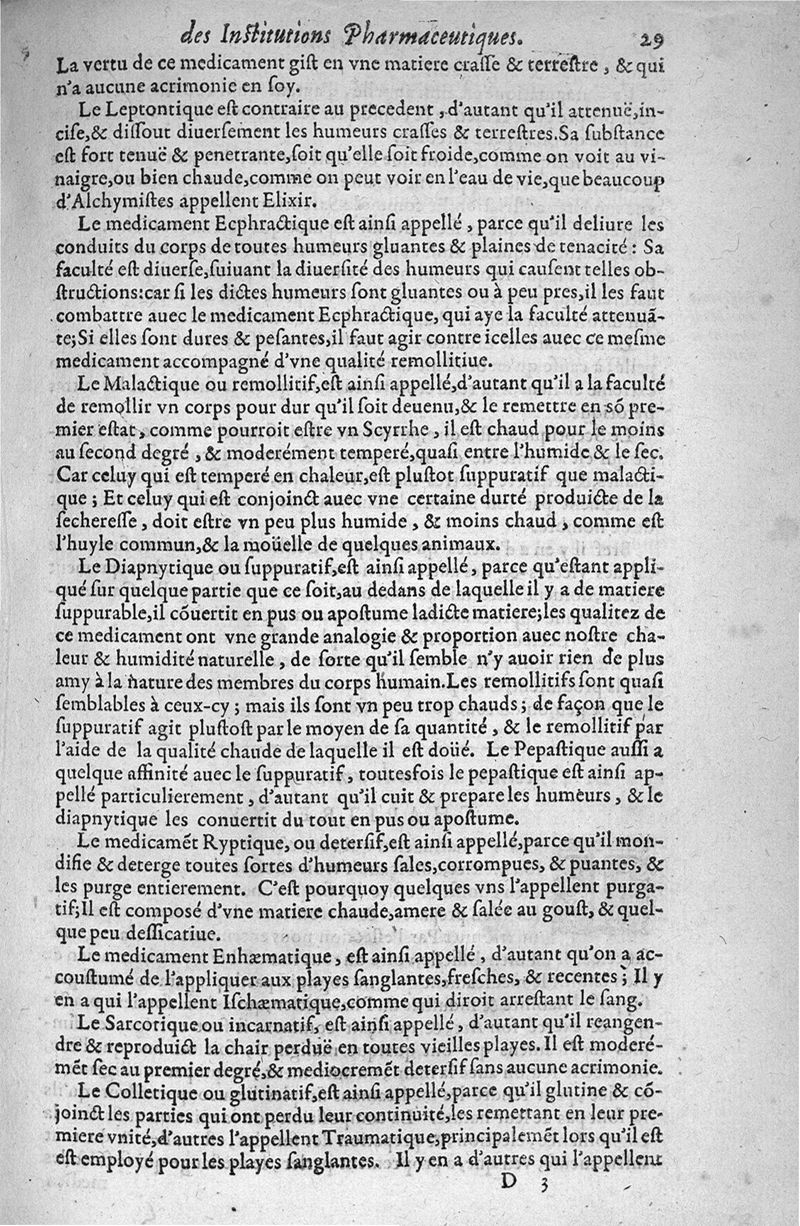 des Inſtitutions Pharmaceutiques. 29
La vertu de ce medicament giſt en vne matiere craſſe & terreſtre, & qui
n'a aucune acrimonie en ſoy.
Le Leptontique eſt contraire au precedent, d'autant qu'il attenuë,in-
ciſe,& diſſout diuerſement les humeurs craſſes & terreſtres.Sa ſubſtance
eſt fort tenuë & penetrante,ſoit qu'elle ſoit froide,comme on voit au vi-
naigre,ou bien chaude,comme on peut voir en l'eau de vie,que beaucoup
d'Alchymiſtes appellent Elixir.
Le medicament Ecphractique eſt ainſi appellé, parce qu'il deliure les
conduits du corps de toutes humeurs gluantes & plaines de tenacité: Sa
faculté eſt diuerſe,ſuiuant la diuerſité des humeurs qui cauſent telles ob-
ſtructions:car ſi les dictes humeurs ſont gluantes ou à peu pres,il les faut
combattre auec le medicament Ecphractique, qui aye la faculté attenuã-
te;Si elles ſont dures & peſantes,il faut agir contre icelles auec ce meſme
medicament accompagné d'vne qualité remollitiue.
Le Malactique ou remollitif,eſt ainſi appellé,d'autant qu'il a la faculté
de remollir vn corps pour dur qu'il ſoit deuenu,& le remettre en sõ pre-
mier eſtat, comme pourroit eſtre vn Scyrrhe, il eſt chaud pour le moins
au ſecond degré, & moderément temperé,quaſi entre l'humide & le ſec.
Car celuy qui eſt temperé en chaleur,eſt pluſtot ſuppuratif que malacti-
que; Et celuy qui eſt conjoinct auec vne certaine durté produicte de la
ſechereſſe, doit eſtre vn peu plus humide, & moins chaud, comme eſt
l'huyle commun,& la moüelle de quelques animaux.
Le Diapnytique ou ſuppuratif,eſt ainſi appellé, parce qu'eſtant appli-
qué ſur quelque partie que ce ſoit,au dedans de laquelle il y a de matiere
ſuppurable,il cõuertit en pus ou apoſtume ladicte matiere;les qualitez de
ce medicament ont vne grande analogie & proportion auec noſtre cha-
leur & humidité naturelle, de ſorte qu'il ſemble n'y auoir rien de plus
amy à la nature des membres du corps humain.Les remollitifs ſont quaſi
ſemblables à ceux-cy; mais ils ſont vn peu trop chauds; de façon que le
ſuppuratif agit pluſtoſt par le moyen de ſa quantité, & le remollitif par
l'aide de la qualité chaude de laquelle il eſt doüé. Le Pepaſtique auſſi a
quelque affinité auec le ſuppuratif, toutesfois le pepaſtique eſt ainſi ap-
pellé particulierement, d'autant qu'il cuit & prepare les humeurs, & le
diapnytique les conuertit du tout en pus ou apoſtume.
Le medicamẽt Ryptique, ou deterſif,eſt ainſi appellé,parce qu'il mon-
difie & deterge toutes ſortes d'humeurs ſales,corrompues, & puantes, &
les purge entierement. C'eſt pourquoy quelques vns l'appellent purga-
tif;Il eſt compoſé d'vne matiere chaude,amere & ſalée au gouſt, & quel-
que peu deſſicatiue.
Le medicament Enhæmatique, eſt ainſi appellé, d'autant qu'on a ac-
couſtumé de l'appliquer aux playes ſanglantes,freſches, & recentes; Il y
en a qui l'appellent Iſchæmatique,comme qui diroit arreſtant le ſang.
Le Sarcotique ou incarnatif, eſt ainſi appellé, d'autant qu'il reangen-
dre & reproduict la chair perduë en toutes vieilles playes. Il eſt moderé-
mẽt ſec au premier degré,& mediocremẽt deterſif ſans aucune acrimonie.
Le Colletique ou glutinatif,eſt ainſi appellé,parce qu'il glutine & cõ-
joinct les parties qui ont perdu leur continuité,les remettant en leur pre-
miere vnité,d'autres l'appellent Traumatique,principalemẽt lors qu'il eſt
eſt employé pour les playes ſanglantes. Il y en a d'autres qui l'appellent
D 3